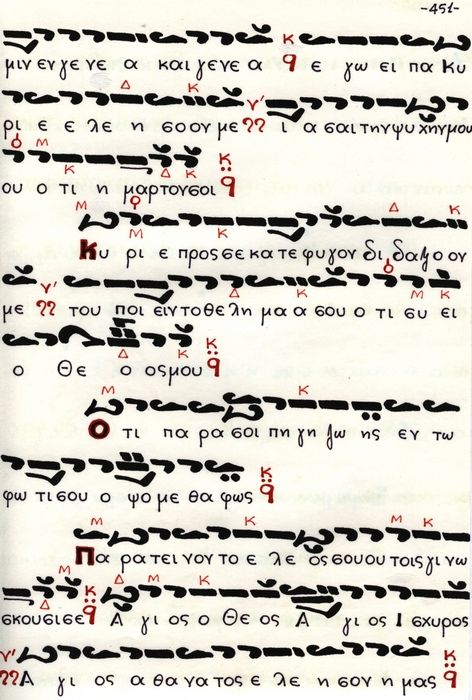 -451-
μιν εν γε νε α και γε νε α ε γω ει πα Κυ
ρι ε ε λε η σο ον με ι α σαι την ψυ χην μου
ου ο τι η μαρτον σοι
Κυ ρι ε προς σε κα τε φυ γον δι δα ξο ον
με του ποι ειν το θε λη μα α σου ο τι συ ει
ο Θε ο ος μου
Ο τι πα ρα σοι πη γη ζω ης εν τω
φω τι σου ο ψο με θα φως
Πα ρα τει νον το ε λε ος σου ου τοις γι νω
σκου σι σε Α γι ος ο Θε ος Α γι ος Ι σχυρος
Α γι ος α θα να τος ε λε η σον η μας